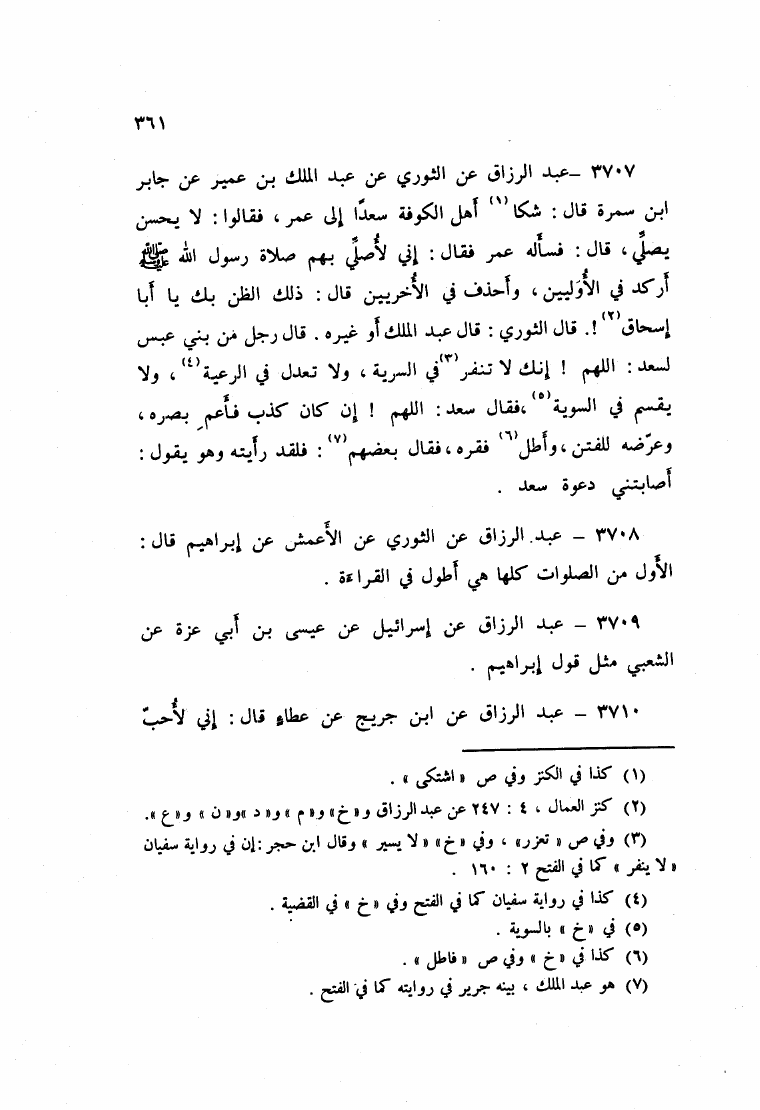 ٣٦١
٣٧٠٧ –عبد الرزاق عن الثوري عن عبد الملك بن عمير عن جابر
ابن سمرة قال : شكا(١) أهل الكوفة سعدًا إلى عمر ، فقالوا : لا يحسن
يصلِّي، قال : فسأله عمر فقال : إني لأُصلِّي بهم صلاة رسول الله ﷺ
أركد في الأُوليين ، وأحذف في الأُخريين قال : ذلك الظن بك يا أبا
إسحاق(٢) !. قال الثوري : قال عبد الملك أو غيره . قال رجل من بني عبس
لسعد : اللهم ! إنك لا تنفر(٣)في السرية ، ولا تعدل في الرعية(٤) ، ولا
يقسم في السوية(٥) ،فقال سعد : اللهم ! إن كان كذب فأعمِ بصره ،
وعرّضه للفتن ، وأطل(٦) فقره ، فقال بعضهم(٧) : فلقد رأيته وهو يقول :
أصابتني دعوة سعد .
٣٧٠٨ – عبد الرزاق عن الثوري عن الأعمش عن إبراهيم قال :
الأول من الصلوات كلها هي أطول في القراءة .
٣٧٠٩ – عبد الرزاق عن إسرائيل عن عيسى بن أبي عزة عن
الشعبي مثل قول إبراهيم .
٣٧١٠ – عبد الرزاق عن ابن جريج عن عطاءٍ قال : إني لأُحبّ
(١) كذا في الكنز وفي ص « اشتكى » .
(٢) كنز العمال ، ٤ : ٢٤٧ عن عبد الرزاق و«خ» و«م » و« د »و« ن » و« ع ».
(٣) وفي ص « تعزر» ، وفي «خ» « لا يسير » وقال ابن حجر :إن في رواية سفيان
« لا ينفر » كما في الفتح ٢ : ١٦٠ .
(٤) كذا في رواية سفيان كما في الفتح وفي « خ » في القضية .
(٥) في « خ » بالسوية .
(٦) كذا في « خ » وفي ص « فاطل » .
(٧) هو عبد الملك ، بينه جرير في روايته كما في الفتح .